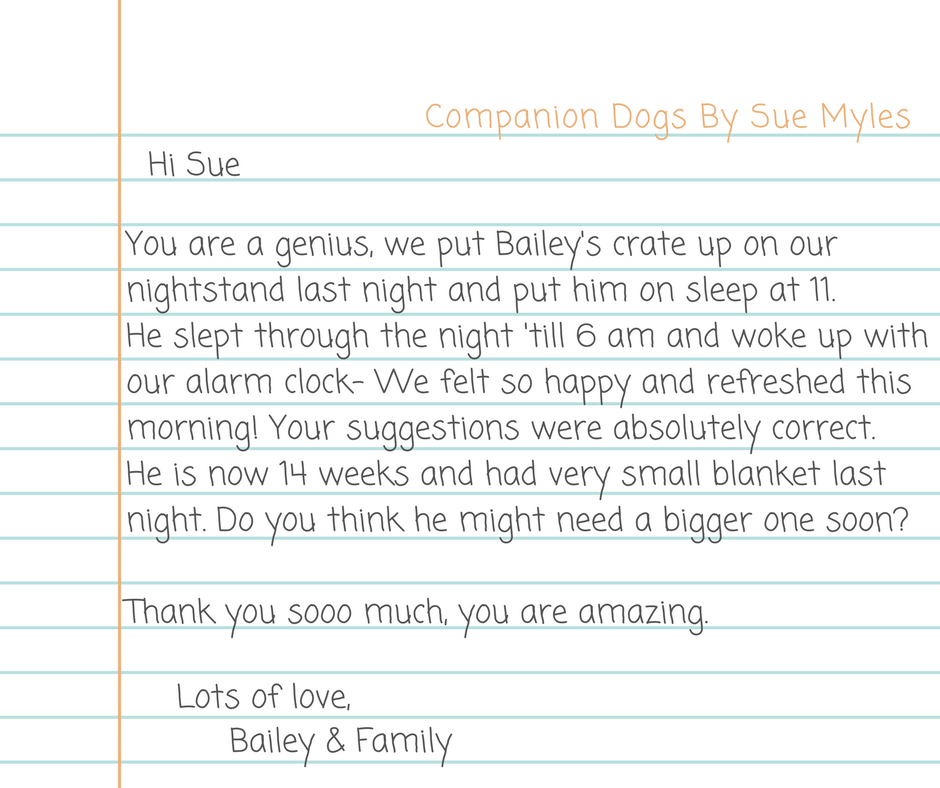 Companion Dogs By Sue Myles
Hi Sue
You are a genius, we put Bailey's crate up on our
nightstand last night and put him on sleep at 11.
He slept through the night 'till 6 am and woke up with
our alarm clock- We felt so happy and refreshed this
morning! Your suggestions were absolutely correct.
He is now 14 weeks and had very small blanket last
night. Do you think he might need a bigger one soon?
Thank you sooo much, you are amazing.
Lots of love,
Bailey & Family